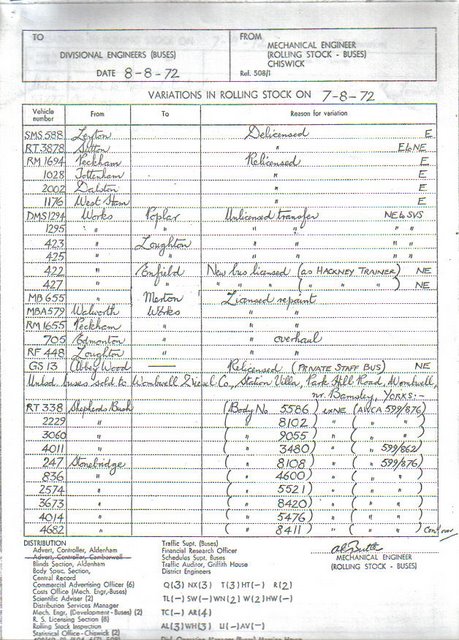 TO
DIVISIONAL ENGINEERS (BUSES)
DATE 8-8-72
FROM
MECHANICAL ENGINEER
(ROLLING STOCK - BUSES)
CHISWICK
Ref. 508/1
VARIATIONS IN ROLLING STOCK ON 7-8-72
Vehicle number From To Reason for variation
SMS 588 Leyton Delicensed E
RT 3878 Sutton " E to NE
RM 1694 Peckham Relicensed E
1028 Tottenham " E
2002 Dalston " E
1176 West Ham " E
DMS 1294 Works Poplar Unlicensed transfer NE to SVS
1295 " " " " " "
423 " Loughton " " " "
425 " " " " " "
422 " Enfield New bus licensed (as HACKNEY TRAINER) NE
427 " " " " " ( " " ) NE
MB 655 " Merton Licensed repaint
MBA 579 Walworth Works " "
RM 1655 Peckham " " "
705 Edmonton " " overhaul
RF 448 Loughton " " "
GS 13 (Abbey Wood) — Relicensed (PRIVATE STAFF BUS) NE
Unlsd. buses sold to Wombwell Diesel Co., Station Villa, Park Hill Road, Wombwell,
nr. Barnsley, YORKS:-
RT 338 Shepherds Bush (Body No 5586) ex NE (AWCA 599/876)
2229 " ( " 8102 ) " ( " " )
3060 " ( " 9055 ) " ( " " )
4011 " ( " 3480 ) " ( " 599/862)
247 Stonebridge ( " 8108 ) " ( " 599/876)
836 " ( " 4600 ) " ( " " )
2574 " ( " 5521 ) " ( " " )
3673 " ( " 8420 ) " ( " " )
4014 " ( " 5476 ) " ( " " )
4682 " ( " 8411 ) " ( " " )
DISTRIBUTION
Advert. Controller, Aldenham
Advert. Controller, Camberwell
Blinds Section, Aldenham
Body Spec. Section,
Central Record
Commercial Advertising Officer (6)
Costs Office (Mech. Engr-Buses)
Scientific Adviser (2)
Distribution Services Manager
Mech. Engr. (Development - Buses) (2)
R. S. Licensing Section (8)
Rolling Stock Inspection
Statistical Office - Chiswick (2)
Traffic Supt. (Buses)
Financial Research Officer
Schedules Supt. Buses
Traffic Auditor, Griffith House
District Engineers
Q(3) NX(3) T(3) HT(-) R(2)
TL(-) SW(-) WN(2) W(2) HW(-)
TC(-) AR(4)
AL(3) WH(3) U(-) AV(-)
MECHANICAL ENGINEER
(ROLLING STOCK - BUSES)